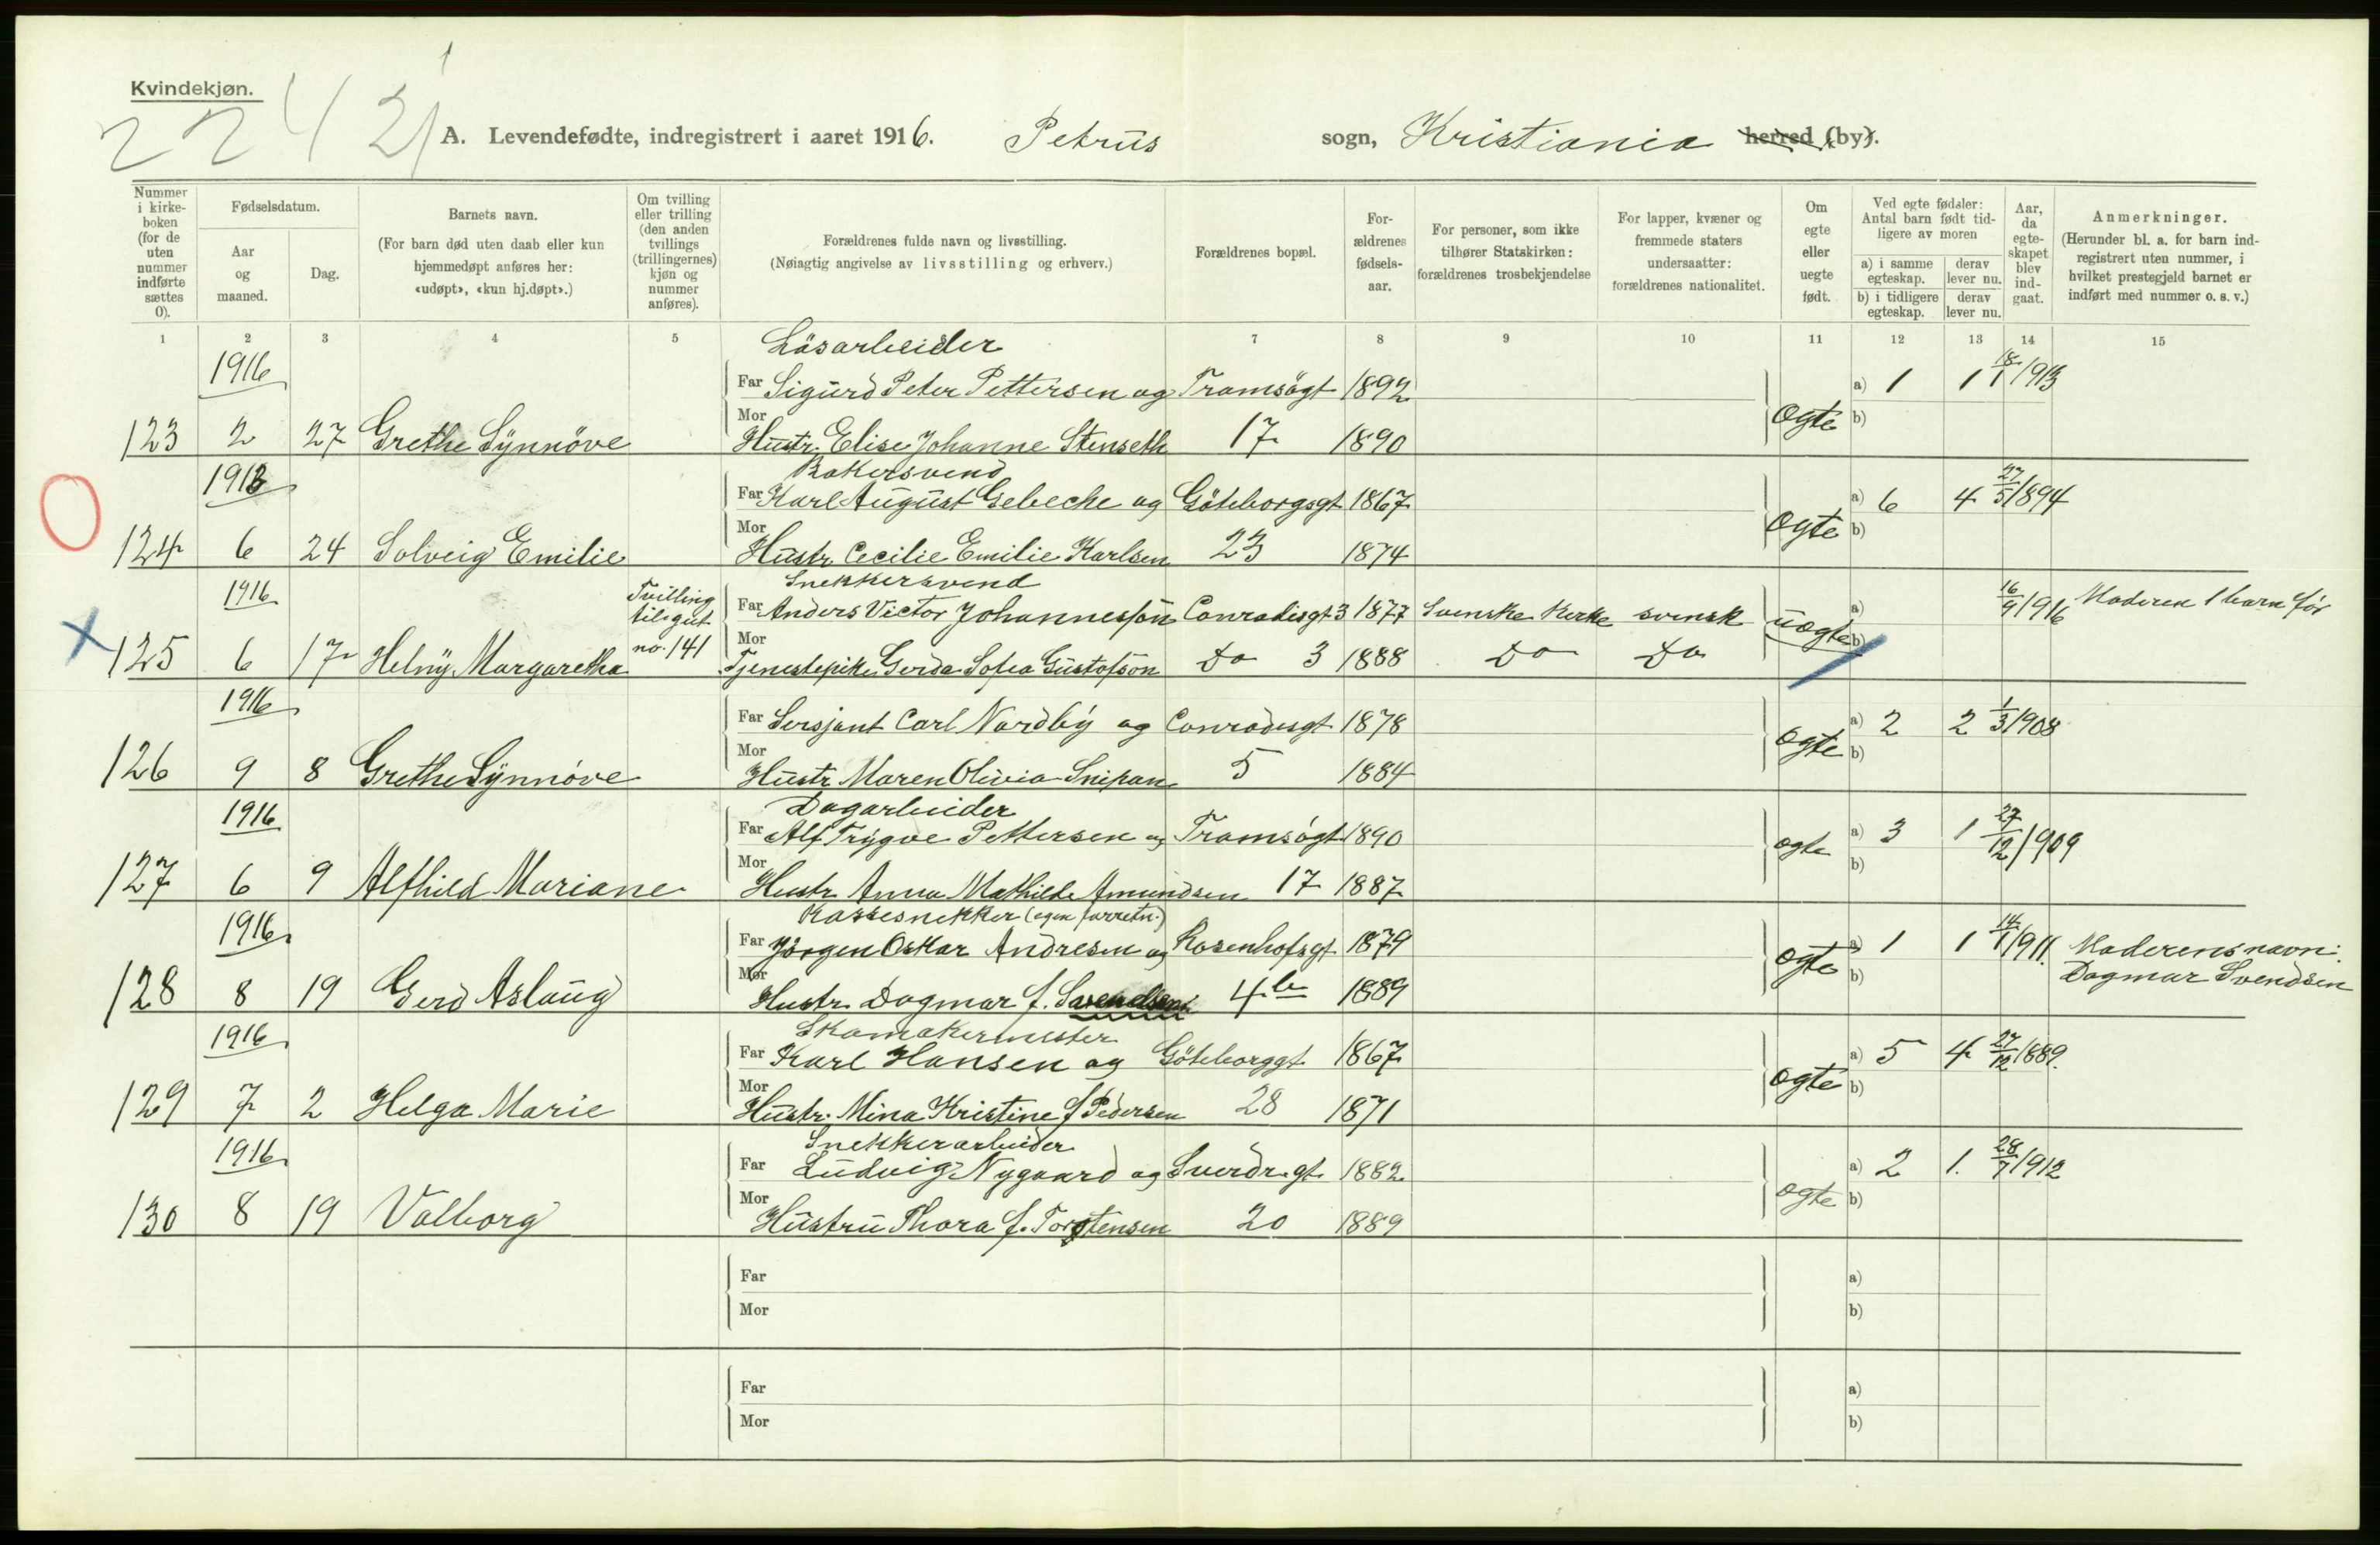 Kvindekjøn.
2242
A. Levendefødte, indregistrert i aaret 1916. Petrus sogn, Kristiania herred (by).
Nummer i kirkeboken (for de uten nummer indførte sættes 0).
Fødselsdatum.
Aar og maaned.
Dag.
Barnets navn.
(For barn død uten daab eller kun hjemmedøpt anføres her: «udøpt», «kun hj.døpt».)
Om tvilling eller trilling (den anden tvillings (trillingernes) kjøn og nummer anføres).
Forældrenes fulde navn og livsstilling.
(Nøiagtig angivelse av livsstilling og erhverv.)
Forældrenes bopæl.
Forældrenes fødselsaar.
For personer, som ikke tilhører Statskirken: forældrenes trosbekjendelse
For lapper, kvæner og fremmede staters undersaatter: forældrenes nationalitet.
Om egte eller uegte født.
Ved egte fødsler: Antal barn født tidligere av moren
a) i samme egteskap. derav lever nu.
b) i tidligere egteskap. derav lever nu.
Aar, da egteskapet blev indgaat.
Anmerkninger.
(Herunder bl. a. for barn indregistrert uten nummer, i hvilket prestegjeld barnet er indført med nummer o. s. v.)
1 2 3 4 5 7 8 9 10 11 12 13 14 15
Løsarbeider
1916 Far Sigurd Peter Pettersen og Tromsøgt 1892 a) 1 1 18/1 1913
123 2 27 Grethe Synnöve Mor Hustr. Elise Johanne Stenseth 17 1890 Egte b)
Bakersvend
1913 Far Karl August Gebeche og Göteborgsgt 1867 a) 6 4 27/5 1894
124 6 24 Solveig Emilie Mor Hustr. Cecilie Emilie Karlsen 23 1874 Egte b)
Snekkersvend
1916 Tvilling til gut no. 141 Far Anders Victor Johannesson Conradisgt 3 1877 Svenske Kirke svensk a) 16/9 1916 Moderen 1 barn før
125 6 17 Helny Margaretha Mor Tjenestepike Gerda Sofia Gustofson Do 3 1888 Do Do uegte b)
1916 Far Sersjant Carl Nordby og Conradisgt 1878 a) 2 2 1/3 1908
126 9 8 Grethe Synnöve Mor Hustr Maren Olivia Snipan 5 1884 Egte b)
Dagarbeider
1916 Far Alf Trygve Pettersen og Tromsøgt 1890 a) 3 1 27/12 1909
127 6 9 Alfhild Mariane Mor Hustr. Anna Mathilde Amundsen 17 1887 egte b)
Kassesnekker (egen forretn.)
1916 Far Jörgen Oskar Andresen og Rosenhofsgt 1879 a) 1 1 14/1 1911. Moderens navn: Dagmar Svendsen
128 8 19 Gerd Aslaug Mor Hustr. Dagmar f. Svendsen 4b 1889 Egte b)
Skomakermester
1916 Far Karl Hansen og Göteborggt 1867 a) 5 4 27/12 1889.
129 7 2 Helga Marie Mor Hustr. Mina Kristine f Pedersen 28 1871 Egte b)
Snekkerarbeider
1916 Far Ludvig Nygaard og Sverdr.gt. 1882 a) 2 1. 28/7 1912
130 8 19 Valborg Mor Hustru Thora f. Torstensen 20 1889 egte b)
Far a)
Mor b)
Far a)
Mor b)